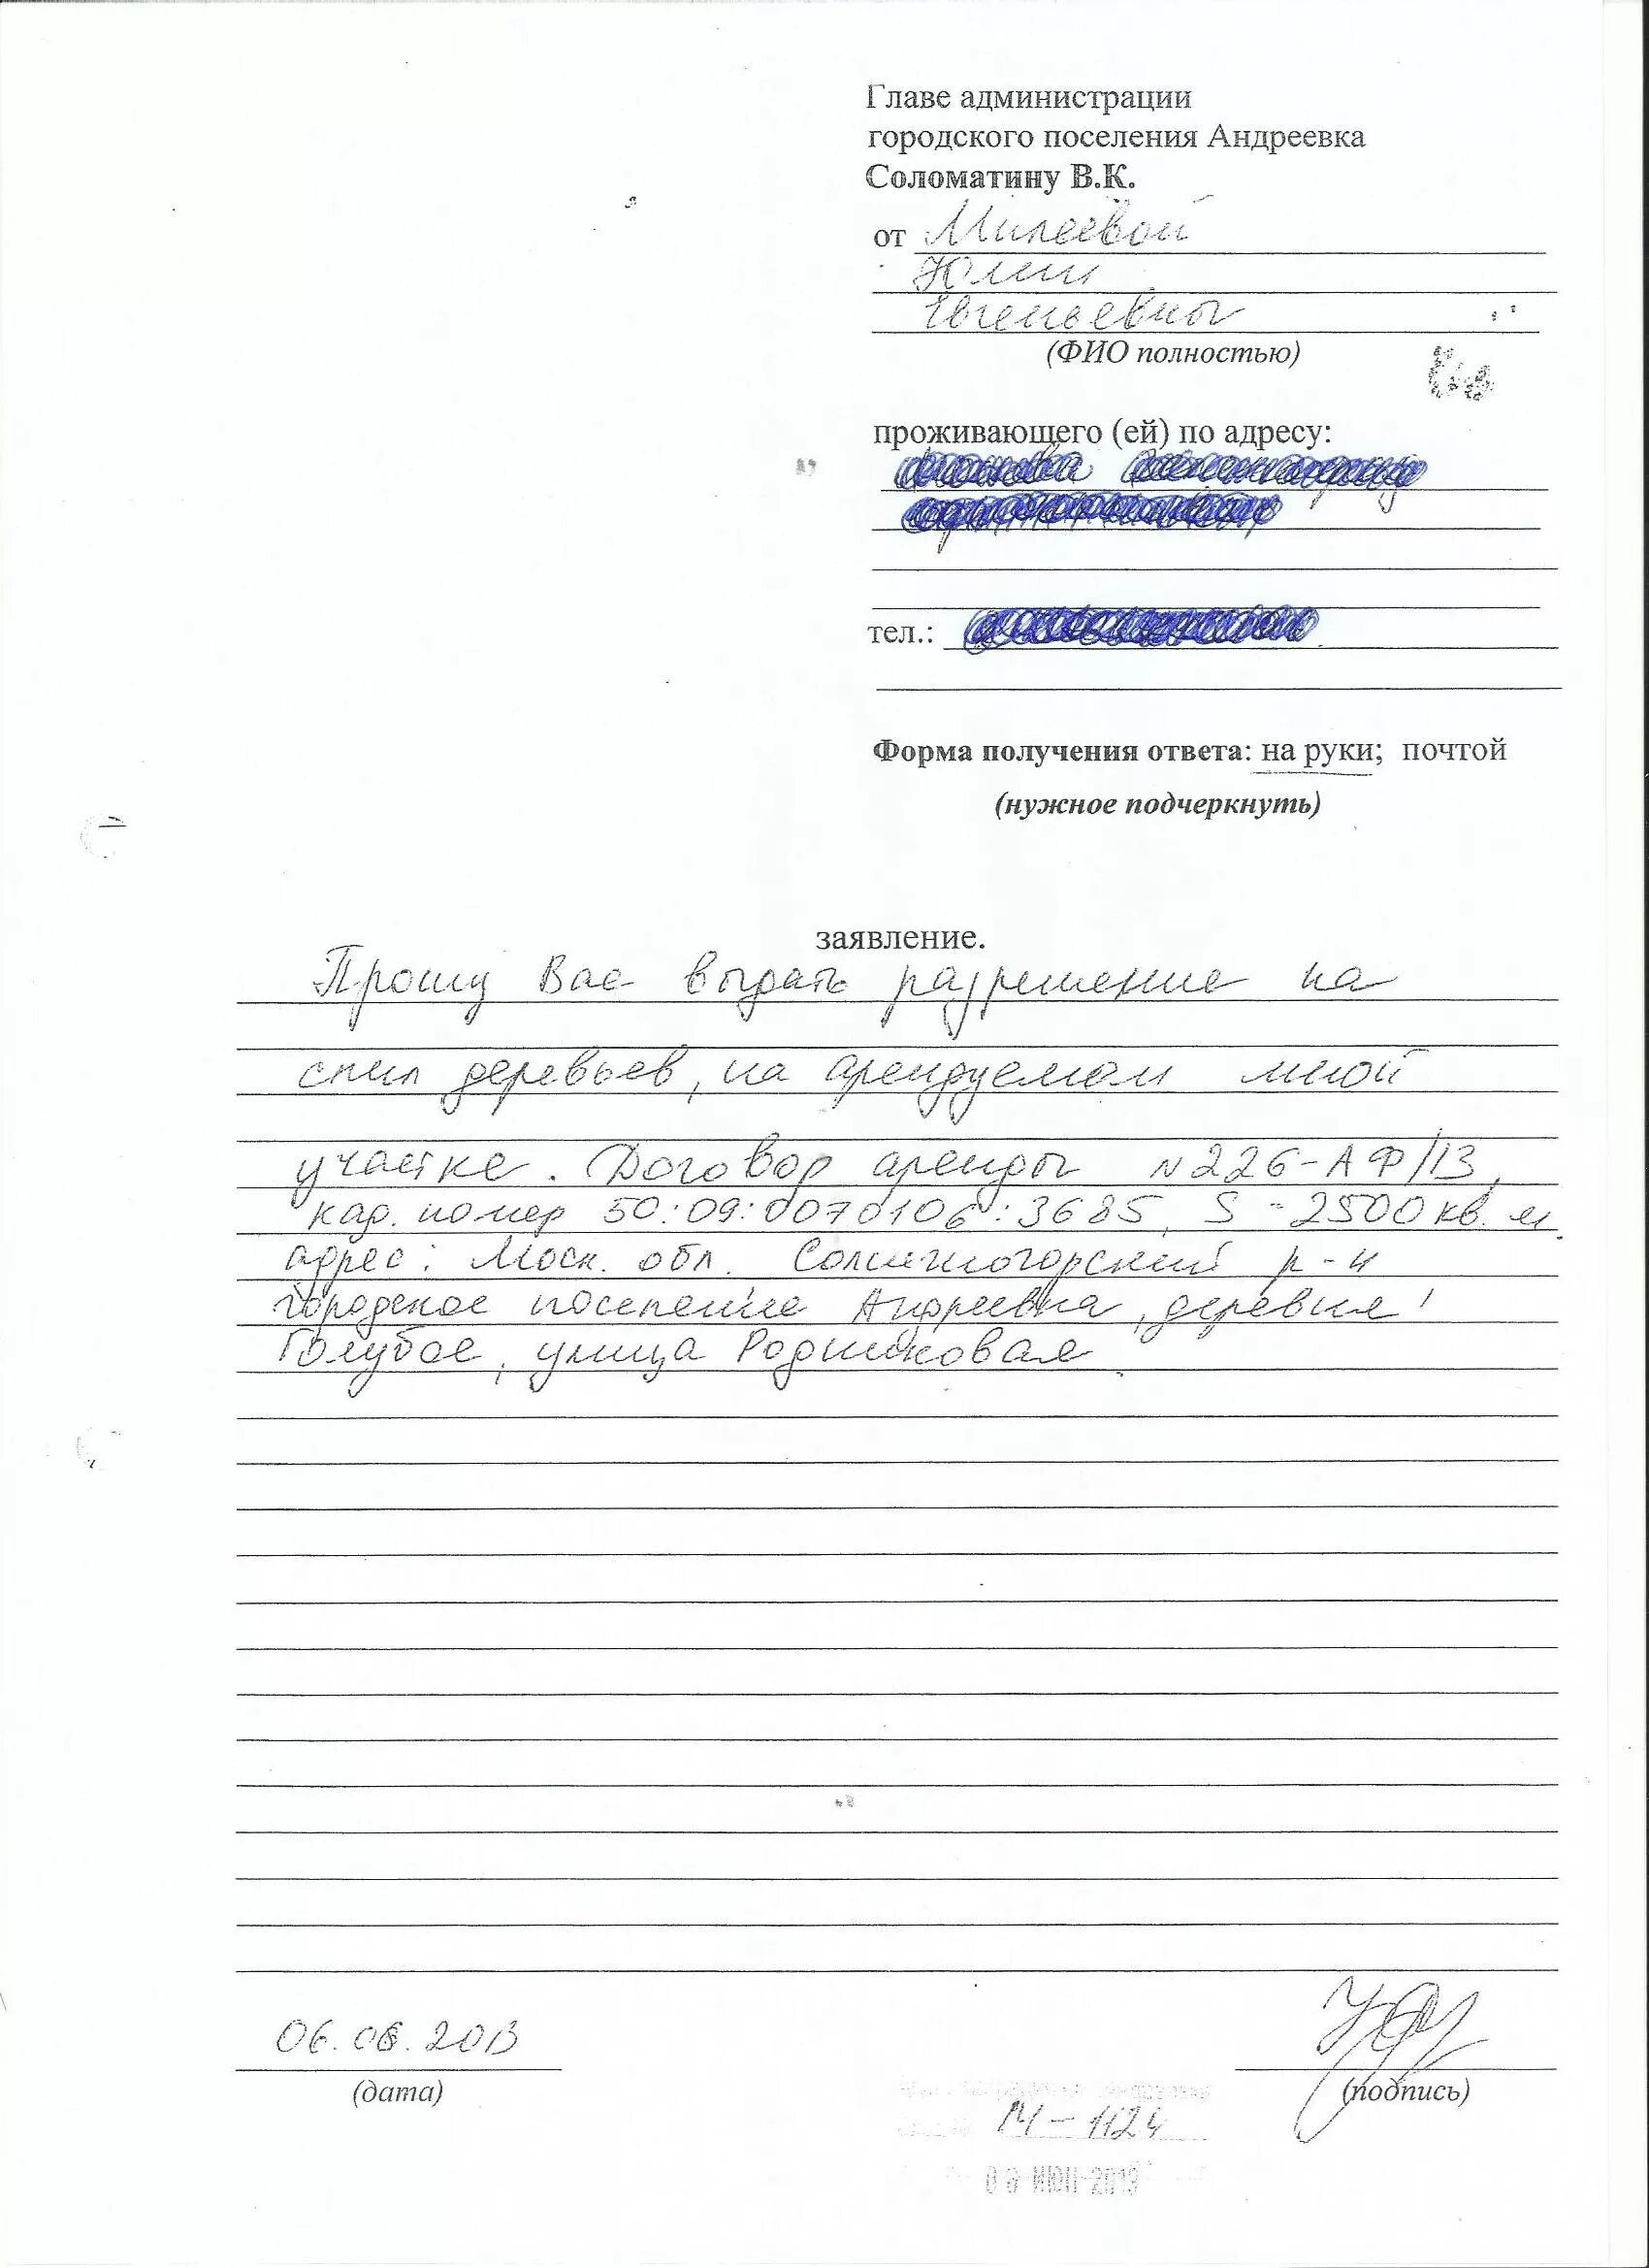 Главе администрации
городского поселения Андреевка
Соломатину В.К.
от Милеевой
Юлии
Евгеньевны
(ФИО полностью)
проживающего (ей) по адресу:
тел.:
Форма получения ответа: на руки; почтой
(нужное подчеркнуть)
заявление.
Прошу Вас выдать разрешение на
спил деревьев, на арендуемом мной
участке. Договор аренды N226-АФ/13,
кад. номер 50:09:0070106:3685, S-2500 кв. м.
адрес: Моск. обл. Солнечногорский р-н
городское поселение Андреевка, деревня
Голубое, улица Родниковая
06.06.2013
(дата)
(подпись)
М-1124
06 ИЮН 2013